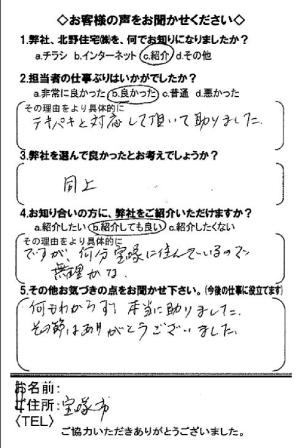 ◇お客様の声をお聞かせください◇
1.弊社、北野住宅㈱を、何でお知りになりましたか？
a.チラシ b.インターネット c.紹介 d.その他
2.担当者の仕事ぶりはいかがでしたか？
a.非常に良かった b.良かった c.普通 d.悪かった
その理由をより具体的に
テキパキと対応して頂いて助りました。
3.弊社を選んで良かったとお考えでしょうか？
同上
4.お知り合いの方に、弊社をご紹介いただけますか？
a.紹介したい b.紹介しても良い c.紹介したくない
その理由をより具体的に
ですが、何分宝塚に住んでいるので
無理かな
5.その他お気づきの点をお聞かせ下さい。(今後の仕事に役立てます)
何もわからず、本当に助りました。
その節はありがとうございました。
お名前:
ご住所:宝塚市
〈TEL〉
ご協力いただきありがとうございました。